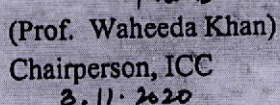 (Prof. Waheeda Khan)
Chairperson, ICC
3.11.2020